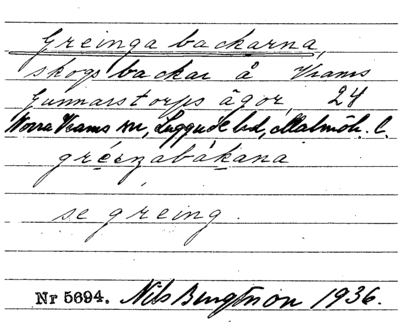 Greinga backarna,
skogsbackar å Vrams
Gunnarstorps ägor, 24
Norra Vrams sn, Luggude hd, Malmöh. l.
gréiŋabákana
se greing.
Nr 5694. Nils Bengtsson 1936.